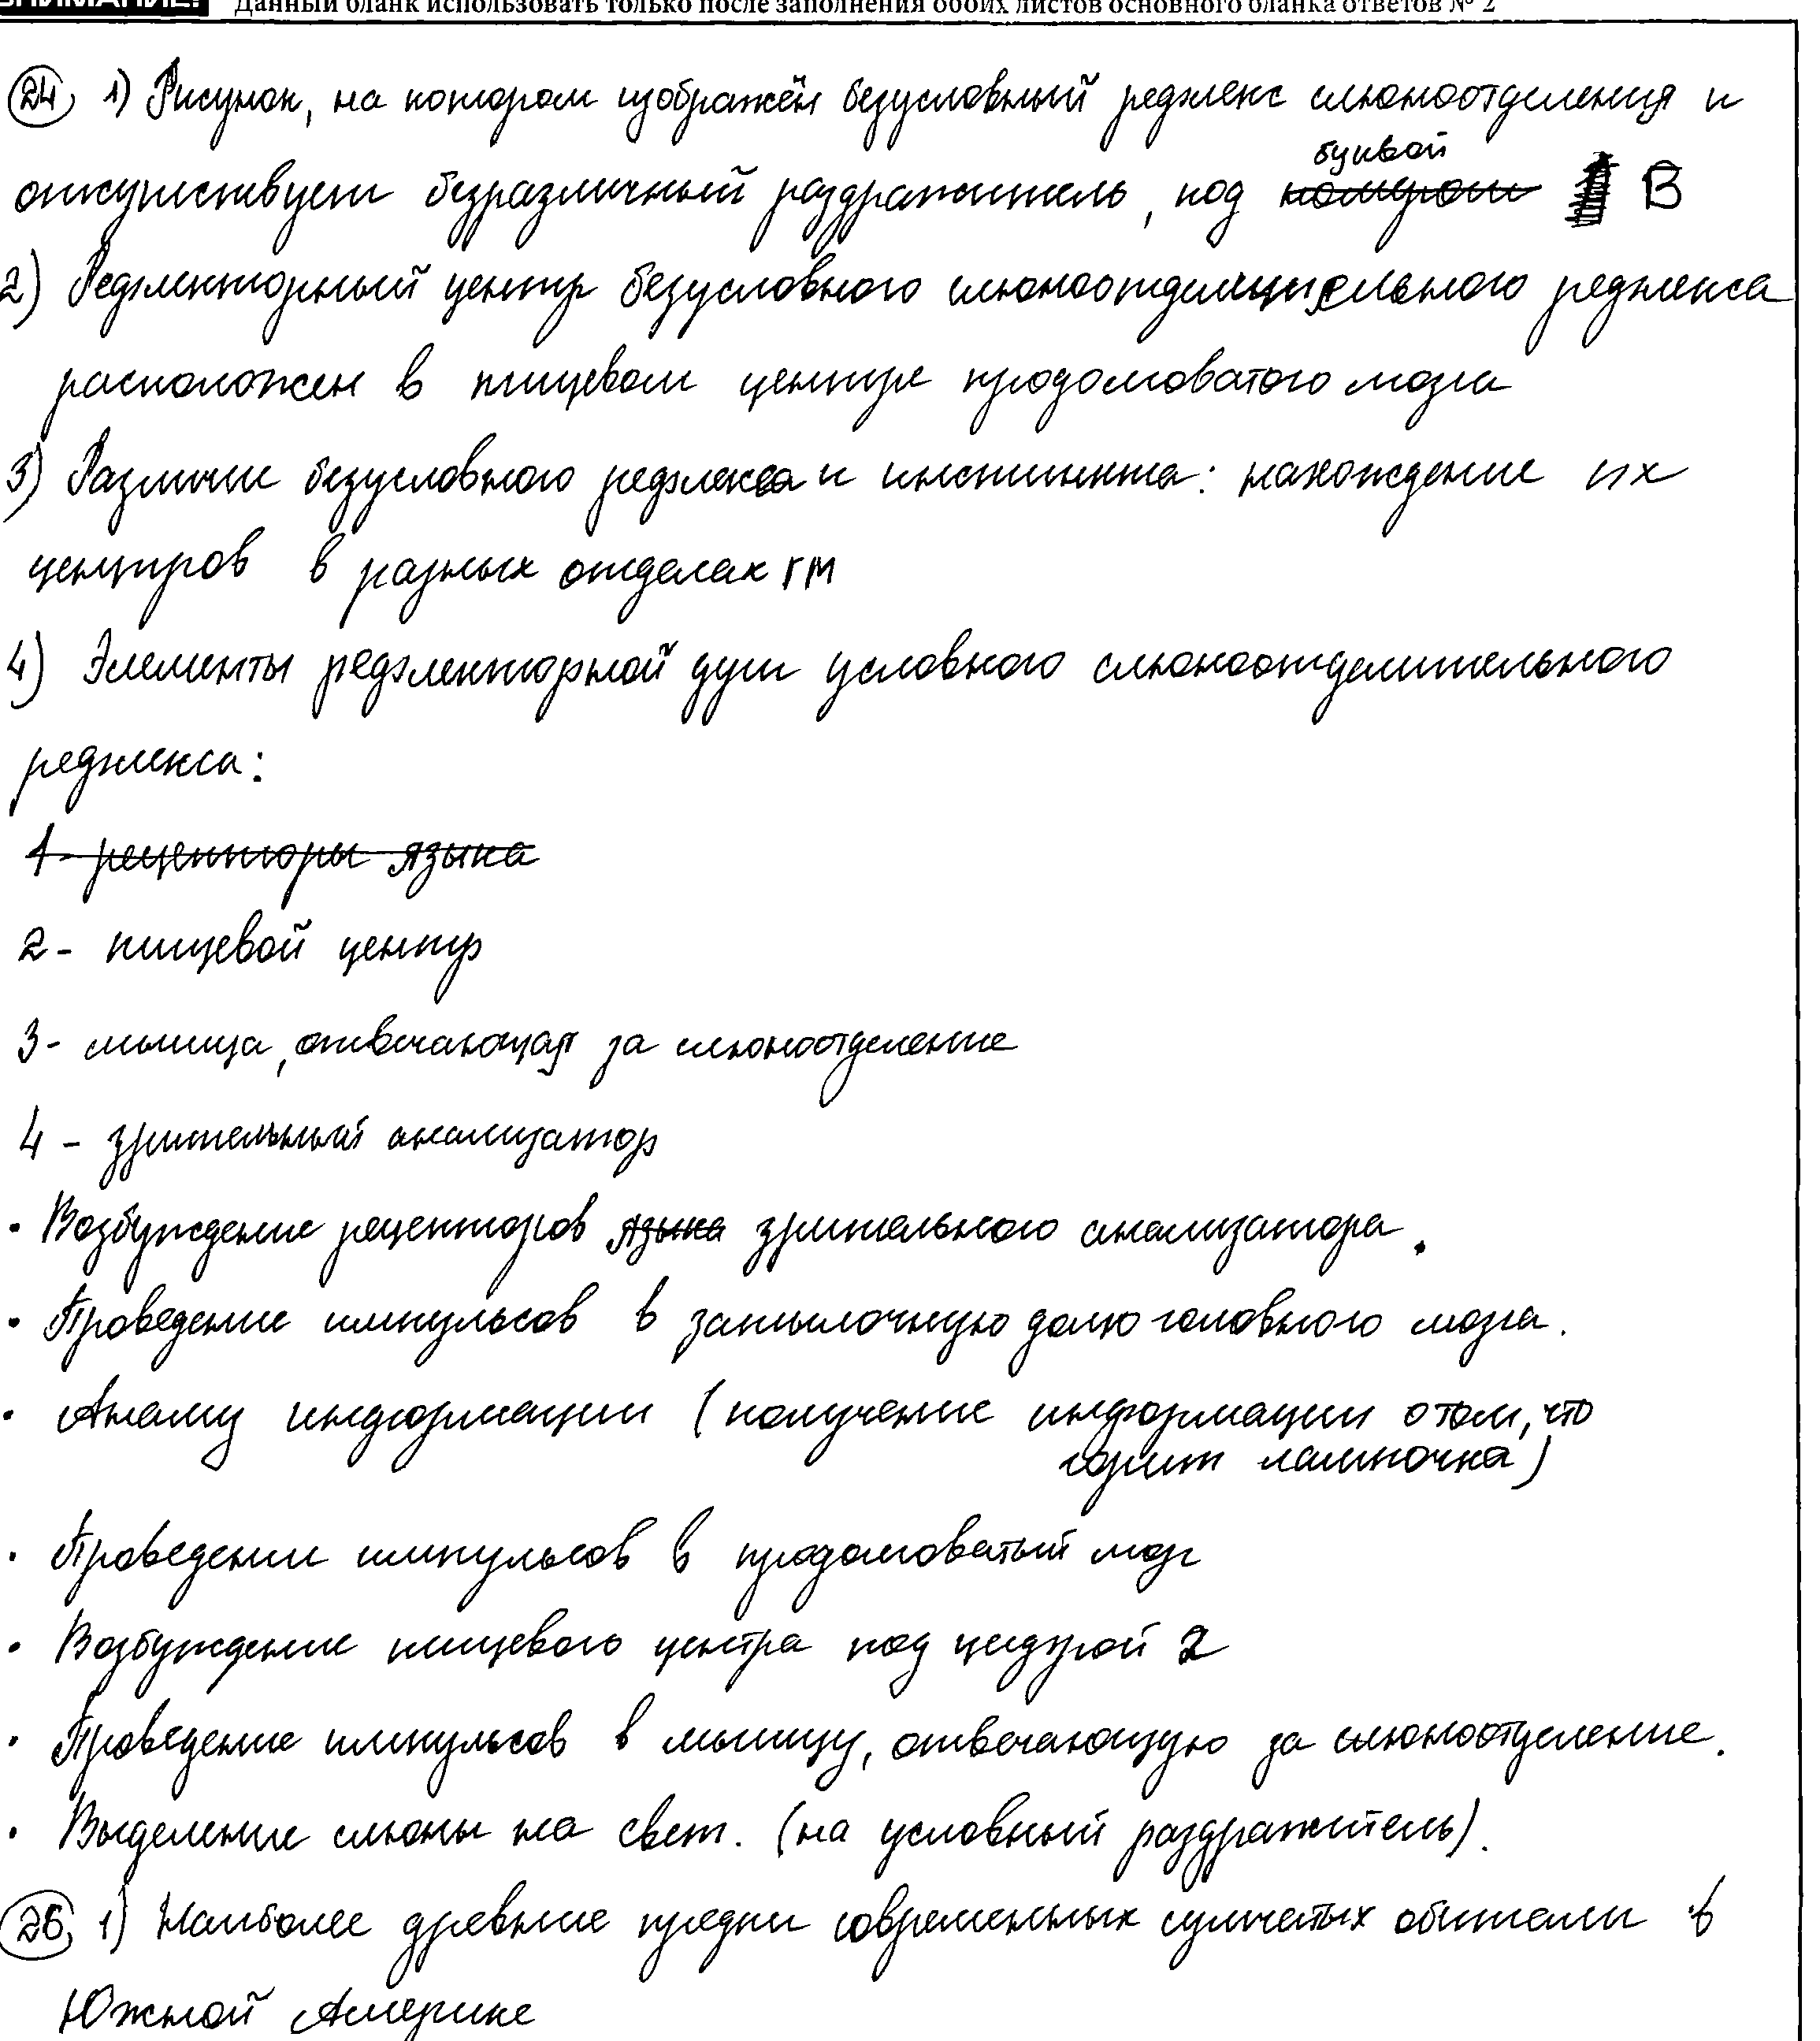 ВНИМАНИЕ! Данный бланк использовать только после заполнения обоих листов основного бланка ответов № 2
24) 1) Рисунок, на котором изображён безусловный рефлекс слюноотделения и
буквой
отсутствует безразличный раздражитель, под номером В
2) Рефлекторный центр безусловного слюноотделительного рефлекса
расположен в пищевом центре продолговатого мозга
3) Различие безусловного рефлекса и инстинкта: нахождение их
центров в разных отделах гм
4) Элементы рефлекторной дуги условного слюноотделительного
рефлекса:
1- рецепторы языка
2- пищевой центр
3- мышца, отвечающая за слюноотделение
4 - зрительный анализатор
• Возбуждение рецепторов языка зрительного анализатора.
• Проведение импульсов в затылочную долю головного мозга.
• Анализ информации (получение информации о том, что
горит лампочка)
• Проведении импульсов в продолговатый мозг
• Возбуждение пищевого центра под цифрой 2
• Проведение импульсов в мышцу, отвечающую за слюноотделение.
• Выделение слюны на свет. (на условный раздражитель).
26) 1) Наиболее древние предки современных сумчатых обитали в
Южной Америке